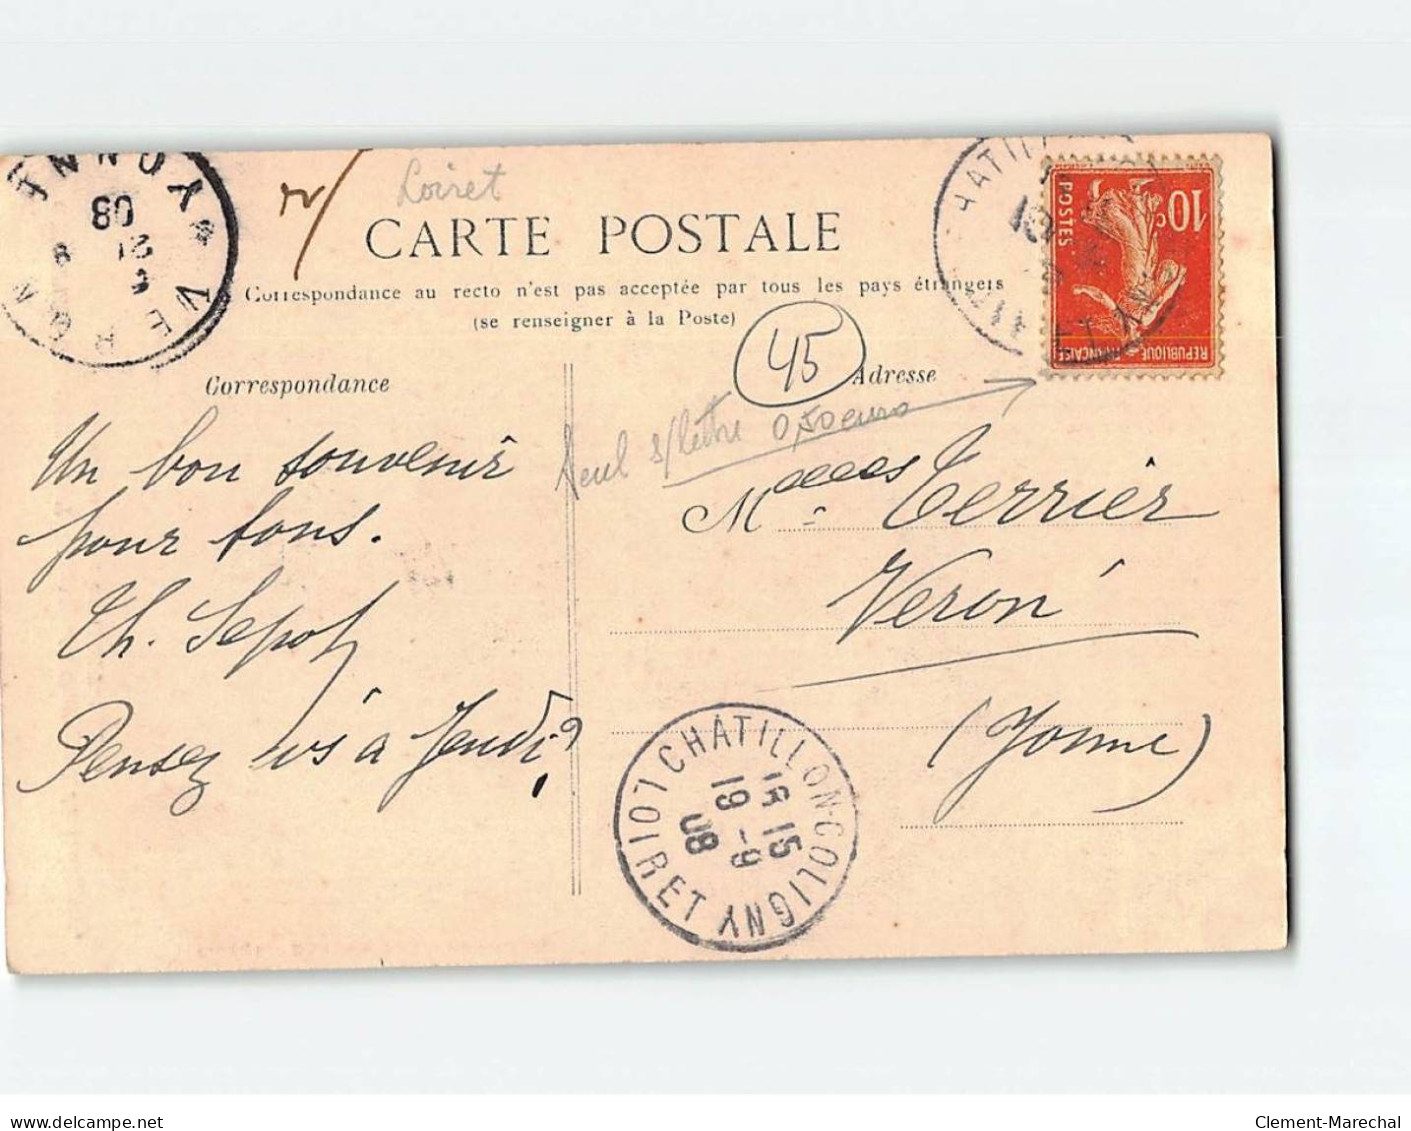 Loiret
CARTE POSTALE
Correspondance au recto n'est pas acceptée par tous les pays étrangers
(se renseigner à la Poste)
Correspondance
Adresse
45
s/lettre 0,50 euro
Un bon souvenir
pour tous.
Th.
Pensez à Jeudi
Terrier
Veron
(Yonne)
CHATILLON-COLIGNY
LOIRET
15
19 -9
08
YONNE
08
21
POSTES
10c
REPUBLIQUE FRANÇAISE
delcampe.net
Clement-Marechal